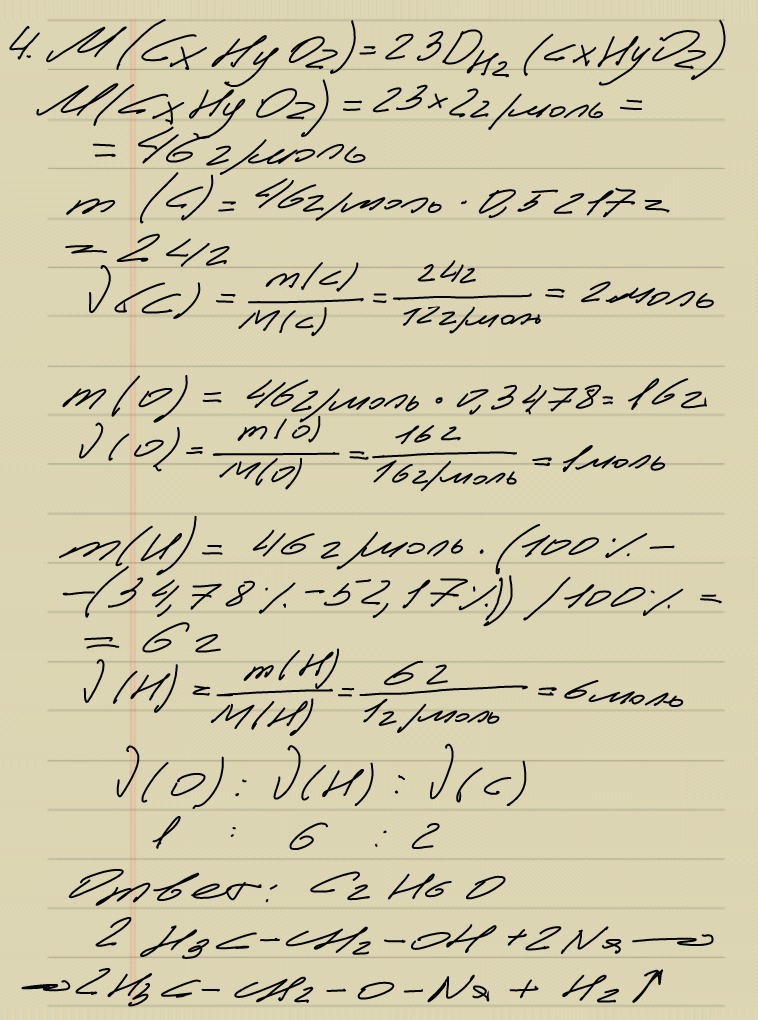 4. M(CxHyOz) = 23D_H2 (CxHyOz)
M(CxHyOz) = 23×2г/моль =
= 46 г/моль
m (C) = 46г/моль · 0,5217 =
= 24г
ν(C) = m(C)/M(C) = 24г/12г/моль = 2моль
m(O) = 46г/моль · 0,3478 = 16г
ν(O) = m(O)/M(O) = 16г/16г/моль = 1моль
m(H) = 46 г/моль · (100% -
-(34,78% - 52,17%)) /100% =
= 6 г
ν(H) = m(H)/M(H) = 6г/1г/моль = 6моль
ν(O) : ν(H) : ν(C)
1 : 6 : 2
Ответ: C2H6O
2 H3C-CH2-OH + 2Na →
→ 2H3C-CH2-O-Na + H2↑